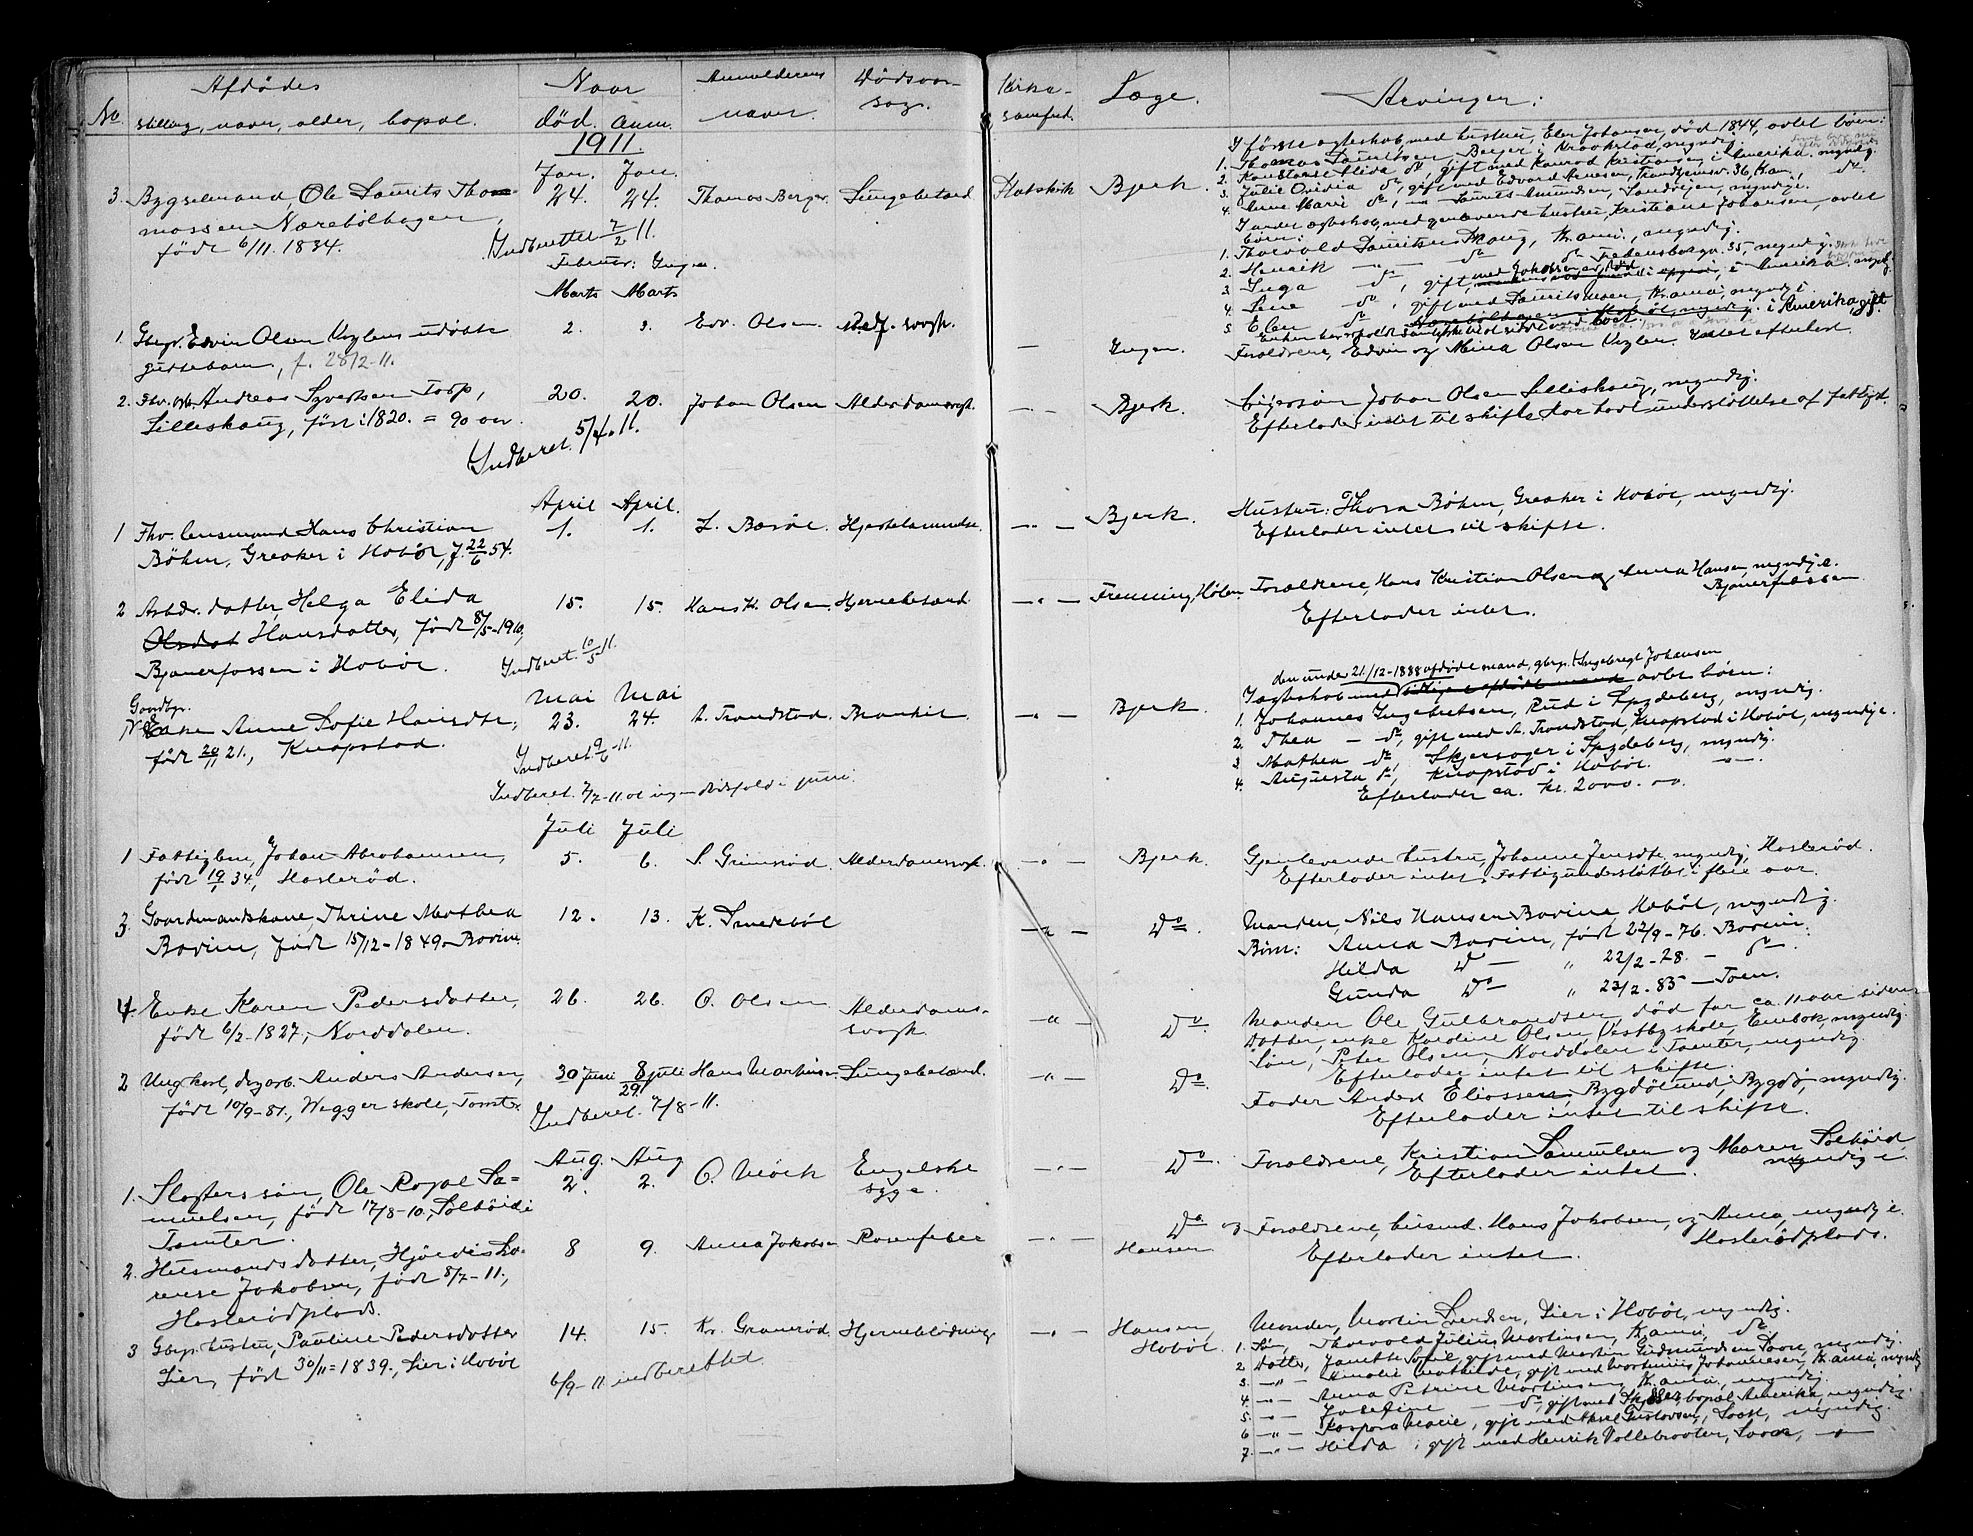 No.
Afdødes
stilling, navn, alder, bopæl.
Naar
død. anm.
Anmelderens
navn.
Dødsaar-
sag.
Kirke-
samfund.
Læge.
Arvinger:
1911.
Jan. Jan.
3. Bygselmand, Ole Laurits Tho-
massen Nærebølhagen,
født 6/11. 1834.
24. 24.
Thomas Berger
Lungebetænd
Statskirk
Bjerk.
I første egteskab med hustru, Elen Johansen, død 1844, avlet børn:
1. Thomas Lauritsen, Berger i Kraakstad, myndig.
2. Konstanse Elida do, gift med Konrad Kristiansen i Amerika, myndig.
3. Julie Ovidia do, gift med Edvard Arnesen, Trondhjemsv. 36, Kra., do.
4. Anne Marie do, Laurits Amundsen, Sandvigen, myndige.
I andet egteskab med gjenlevende hustru, Kristiane Johansen, avlet
børn:
1. Thorvald Lauritsen Skaug, Kr.ania, myndig.
2. Henrik — do do Fredensborgv. 35, myndig.
3. Inga do, gift i Amerika, myndig.
4. Lene do, gift med Laurits Moen, Kr.ania, myndig
5. Elen do i Amerika gift.
Indberettet 7/2 11.
Februar: Ingen.
Marts Marts
1. Gbrgr. Edvin Olsen Viglens udøbte
guttebarn, f. 28/2-11.
2. 3.
Edv. Olsen
Med. svagh.
—
Ingen.
Forældrene, Edvin og Mina Olsen Viglen. Intet efterladt.
2. Fhv. arb. Andreas Syvertsen Torp,
Lilleskaug, født i 1820. = 90 aar.
20. 20.
Johan Olsen
Alderdomssvagh.
— · —
Bjerk.
Johan Olsen Lilleskaug, myndig.
Efterlader intet til skifte, har havt understøttelse af fattigv.
Indberet. 5/4. 11.
April April.
1 Fhv. lensmand Hans Christian
Bøhm, Greaker i Hobøl, f. 22/6 54.
1. 1.
L. Bærøe.
Hjertelammelse.
— · —
Bjerk.
Hustru: Thora Bøhm, Greaker i Hobøl, myndig.
Efterlader intet til skifte.
2 Arbdr. datter, Helga Elida
Olsdat Hansdatter, født 8/5-1910,
Bjanerfossen i Hobøl.
15. 15.
Hans K. Olsen
Hjernebetænd.
— · —
Frenning, Hølen.
Forældrene, Hans Kristian Olsen og Anna Hansen, myndige.
Bjanerfossen.
Efterlader intet.
Indberet. 10/5 11.
Mai Mai
Gaardbr.
No 1 Enke Anne Sofie Hansdtr,
født 20/11 21., Knapstad.
23. 24.
A. Trandstad
Bronkit
— · —
Bjerk.
den under 21/12-1888 afdøde mand, gbrgr. Ingebregt Johansen
I egteskab med tidligere afdøde mand avlet børn:
1. Johannes Ingebretsen, Rud i Spydeberg, myndig.
2. Thea — do, gift med A. Trandstad, Knapstad i Hobøl, myndige.
3. Mathea do, Skjersager i Spydeberg, myndig.
4. Augusta do, Knapstad i Hobøl. — " —
Efterlader ca. kr. 2000.00.
Indberet. 9/6-11.
Indberet. 7/7-11 at ingen dødsfald i juni.
Juli Juli
1 Fattiglem, Johan Abrahamsen,
født 19/1 34, Haslerød.
5. 6.
S. Grimsrød
Alderdomssvagh.
— · —
Bjerk.
Gjenlevende hustru, Johanne Jensdtr, myndig, Haslerød.
Efterlader intet. Fattigunderstøttet i flere aar.
3. Gaardmandskone Thrine Mathea
Bovim, født 15/12-1849, Bovim
12. 13.
K. Smedsbøl
— " —
Do.
Manden, Nils Hansen Bovim, Hobøl, myndig.
Børn: Anna Bovim, født 22/9-76. Bovim.
Hilda Do — " 22/2-78. — do.
Gunda Do " 23/2.85 — Tomt.
4. Enke Karen Pedersdatter,
født 6/2-1827, Norddalen.
26. 26.
O. Olsen
Alderdoms-
svagh.
— " —
Do.
Manden Ole Gulbrandsen, død for ca. 11 aar siden
Datter, enke Karoline Olsen, Vestby skole, Embok, myndig.
Søn, Peter Olsen, Norddalen i Tomter, myndig.
Efterlader intet til skifte.
2 Ungkarl, dagarb. Anders Andersen,
født 10/9-81, Wegger skole, Tomter
30 Juni 8 juli
29.
Hans Martinsen
Lungebetænd.
— " —
Do.
Fader Anders Eliassen, Bygdølund, Bygdø, myndig.
Efterlader intet til skifte.
Indberet. 7/8-11.
Aug. Aug
1. Slagters søn, Ole Roppe Sa=
muelsen, født 17/8-10, Solhøid i
Tomter.
2. 2.
O. Mørk
Engelske
syge.
— · —
Do.
Forældrene, Kristian Samuelsen og Maren Solhøid
myndige
Efterlader intet.
2. Husmandsdatter, Hjørdis Lo-
vise Jakobsen, født 8/7-11,
Haslerødplads.
8 9.
Anna Jakobsen
Rosenfeber
— · —
Do og
Hansen
Forældrene, husmd. Hans Jakobsen, og Anna, myndige.
Haslerødplads.
Efterlader intet.
3 Gbrgr. hustru, Pauline Pedersdatter
Lier, født 30/11=1839., Lier i Hobøl
14. 15.
Kr. Granerød
Hjerneblødning
— · —
Hansen,
Hobøl.
Manden, Martin Lier i Hobøl, myndig.
1. Søn, Thorvald Julius Martinsen, Kr.ania, do
2. Datter, Janette Sofie, gift med Martin Gudmundsen Soon, myndig.
3. — " — Amalie Mathilde, gift med Martinius Johannesen, Kr.ania, myndig
4. — " — Anna Petrine Martinsen, Kr.ania, myndig.
5. — " — Josefine — do, gift med bopæl Amerika, myndig.
6 — " — Kaspara Marie, gift med Aksel Gustavsen, Soon, myndig.
7. — " — Hilda, gift med Henrik Vollebraaten, Soon, — " —
6/9-11 indberettet